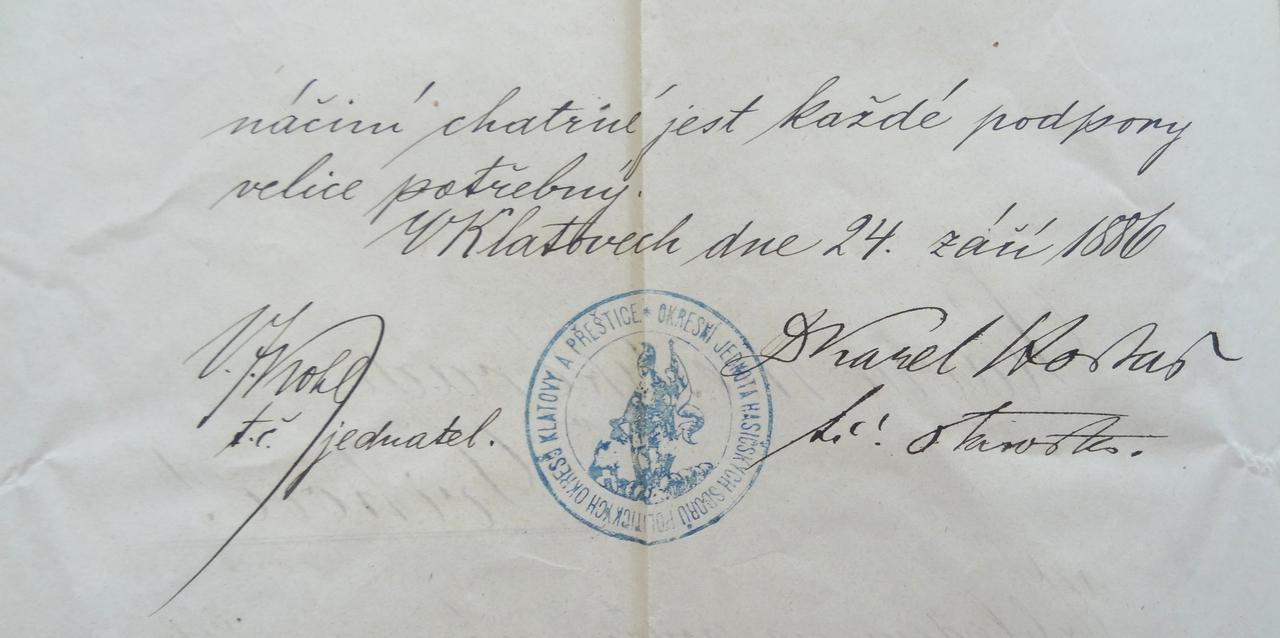 náčiní chatrné jest každé podpory
velice potřebný.
V Klatovech dne 24. září 1886
V. J. Krohl
t.č. jednatel.
Dr Karel Hostaš
t.č. starosta.
* OKRESNÍ JEDNOTA HASIČSKÝCH SBORŮ POLITICKÝCH OKRESŮ KLATOVY A PŘEŠTICE